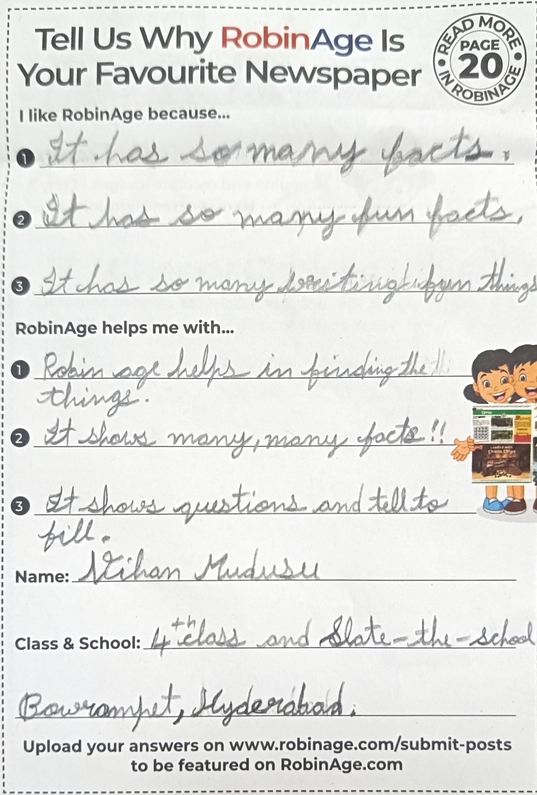 Tell Us Why RobinAge Is
Your Favourite Newspaper
READ MORE
PAGE
20
IN ROBINAGE
I like RobinAge because...
1 It has so many facts.
2 It has so many fun facts,
3 It has so many fun things
RobinAge helps me with...
1 Robin age helps in finding the
things.
2 It shows many, many facts!!
3 It shows questions and tell to
fill.
Name: Mudusu
Class & School: 4th class and Slate-the-school
Bowrampet, Hyderabad.
Upload your answers on www.robinage.com/submit-posts
to be featured on RobinAge.com